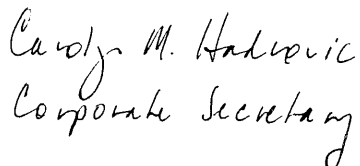 Carolyn M. Hadrovic
Corporate Secretary